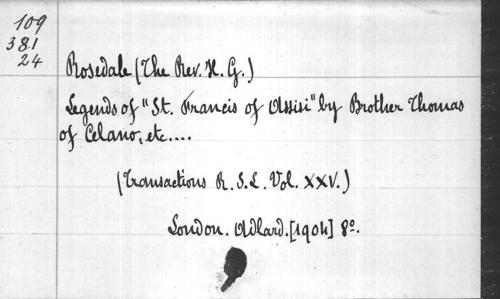 109
381
24
Rosedale (The Rev. H. G.)
Legends of "St. Francis of Assisi" by Brother Thomas
of Celano, etc....
(Transactions R. S. L. Vol. XXV.)
London. Adlard. [1904] 8º.